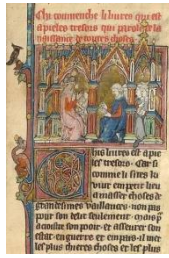 Chi commenche li liures qui est
apieles tresors qui parole de la
naissance de toutes choses
his liures est apie
les tresors. Car si
comme li sires ki
viut en petit lieu
amasser choses de
grandismes vaillances. non pas
pour son delit seulement. mais p
acroistre son pooir. et asseurer son
estat en guerre et en pais. i met
les plus chieres choses et les plus